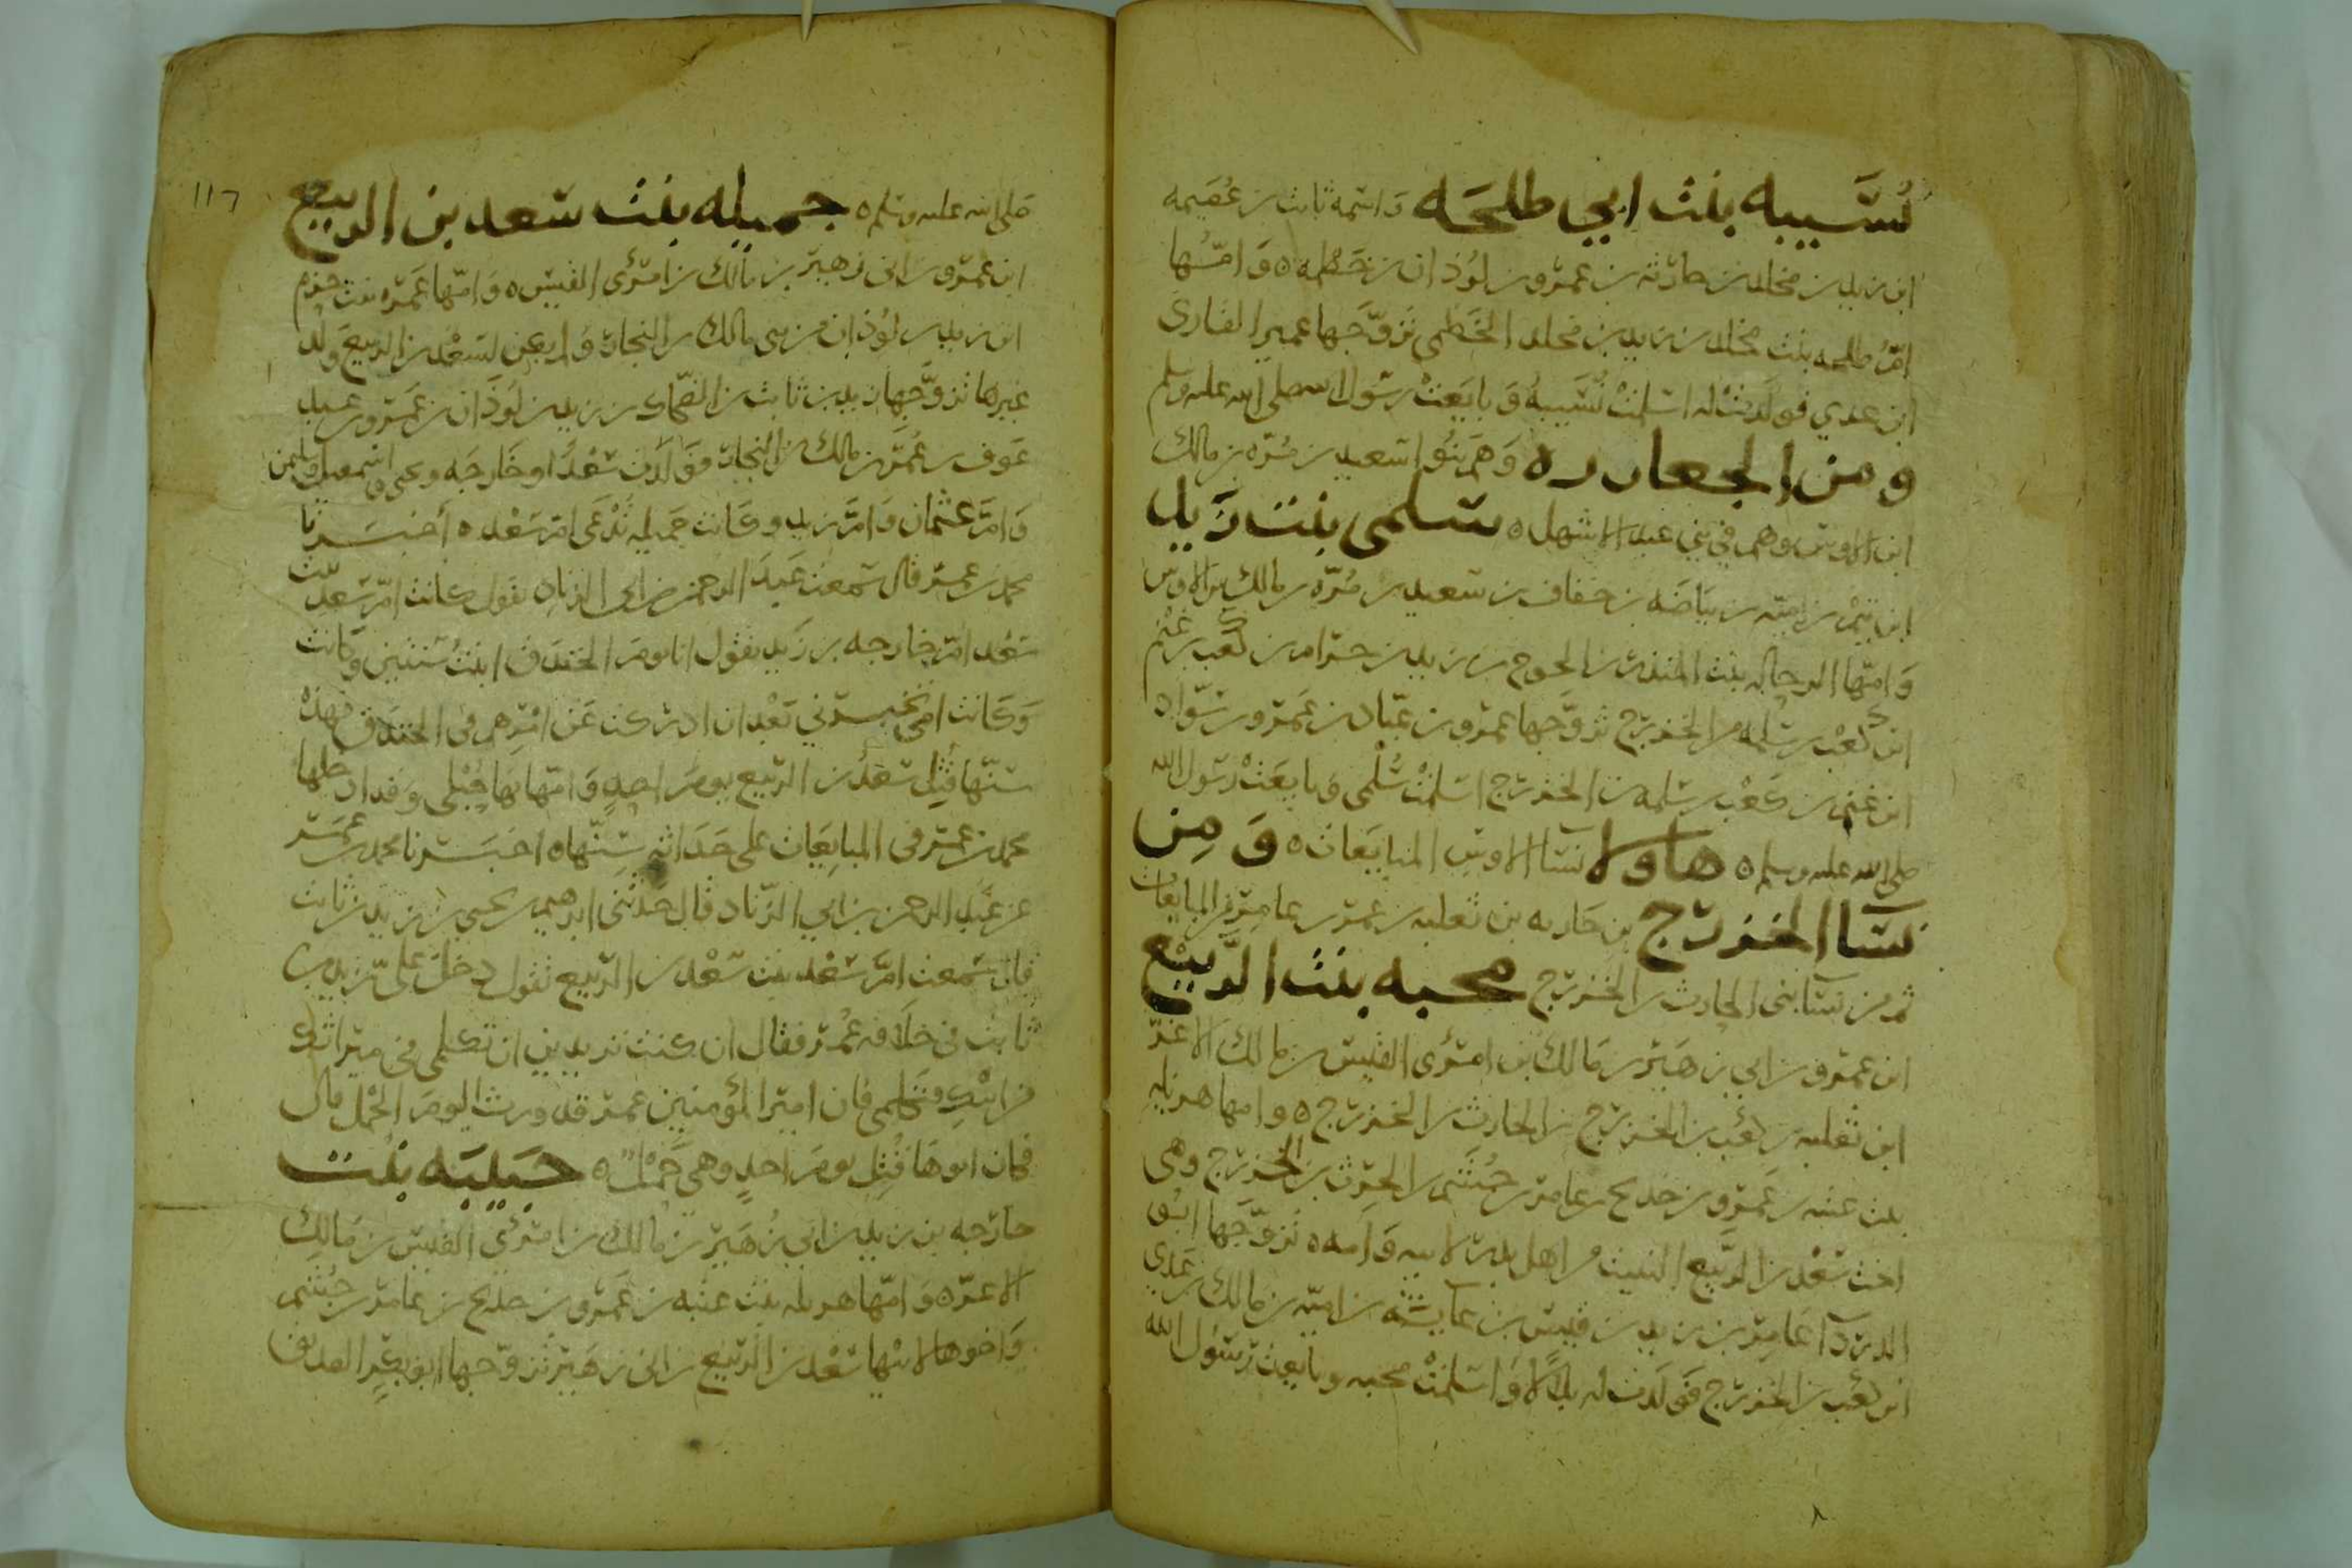 نُسَيبه بنت ابي طلحَه وَاسمه ثابت بن عُصَيمه
ابن زيد بن مخلد بن حارثه بن عمرو بن لوُذان بن خَطمه ه وَامّها
امّ طلحه بنت مخلد بن زيد بن مخلد الخَطمي تزوّجَها عمير القاري
ابن عدي فولَدَت له اسلمتْ نُسَيبهُ وَبايَعَتْ رسول الله صلى الله عليه وسلم
ومن الجعادره ه وَهم بنُوا سَعيد بن مُرّه بن مالك
ابن الاوس وهم في بني عبد الاشهل ه سلمى بنت زَيد
ابن تيم بن اميّه بن بيَاضَه بن خفاف بن سَعيد بن مُرّه بن مالك بن الاوس
وَامّها الرحاله بنت المنذر بن الجموح بن زيد بن حرام بن كعب بن غنم
ابن كعْب بن سلِمه من الخزرج تزوَّجها عمرو بن عبّاد بن عَمرو بن سَوّاد
ابن غنم بن كَعْب بن سلمه بن الخزرج اسلمتْ سُلْمى وَبايعَتْ رَسول الله
صلى الله عليه وسلم ه هاولا نسَآ الاوس المبايَعَات ه وَمِن
نسَآ الخزرج بن حَارثه بن ثعلبه بن عمرو بن عامِر من المبايعات
ثم من نسَآ بنى الحارث بن الخزرج محبه بنت الرَّبيْع
ابن عمرو بن ابي زهَير بن مَالك بن امرُى القيس بن مالك الاغرّ
ابن ثعلبه بن كعْب بن الخزرج بن الحارث بن الخزرج ه وامها هزيله
بنت عتبه بن عَمرو بن خديج بن عامر بن جُشَم بن الحرث بن الخزرج وهى
اخت سَعْد بن الرَّبيع النقيب من اهل بدر لابيه وَامه ه تزوَّجَها ابُو
الدردآ عَامِر بن زيد بن قيس بن عآيشَه بن اميّه بن مالك بن عَدي
ابن كعْب بن الخزرج فوَلَدت له بلَالًا وَاسْلمَتْ محبه وبايعت رسُول الله
١١٦
صَلى الله عليه وسَلم ه جميله بنت سَعد بن الربيع
ابن عَمرو بن ابى زهير بن مَالك بن امرُى القيس ه وَامّها عَمرَه بنت حزم
ابن زيد بن لوُذان من بني مالك بن النجار وَلم يَعِش لسَعْد بن الربيع وَلد
غيرها تزوّجَها زيد بن ثابت بن الضحَّاك بن زيد بن لوَذان بن عَمرو بن عبد
عَوف بن غُنْم بن مالك بن النجار فوَلَدَت سَعْدًا وخَارجَه ويحيى واسمعيل وسليمن
وَامَّ عثمان وَامَّ زيد وكَانت جَميله تُدْعَى امّ سَعْد ه أخبَرنا
محمد بن عمر قال سَمعت عَبد الرحمن بن ابى الزناد يقول كانت امّ سَعد بنت
سَعْد امّ خارجه بن زَيد يقول انا يومَ الخندَق ابنتُ سَنتين وَكانت
وَكَانت امى تخبرني بَعْد ان ادركت عَن امْرِهم فى الخندَق فهَذْه
سنّها قُتِل سَعْدُ بن الرّبيع يومَ احدٍ وَامّها بهَا حُبْلى وَقد ادخلها
محمد بن عمَر فى المبايعَات على حَدَاثَه سِنّها ه اخبَرنا محمد بن عمَر
عن عَبْد الرحمن بن ابي الزّناد قال حَدثَني ابرهيم بن يحيى بن زيد بن ثابت
قال سَمعت امَّ سَعْد بنت سَعْد بن الرّبيع تقول دخلَ عَلى زيد بن
ثابت في خلَافه عُمَر فقال ان كنت تريدين ان تكلمي في ميراثك
من ابيْكِ فتكلمي فان امير المؤمنين عمَر قد ورث اليومَ الحَمْل قال
وكان ابوهَا قُتِل يومَ احدٍ وهي حَمْلٌ ه حَبيبَه بنْت
خارجه بن زيد بن ابي زُهَير بن مَالك بن امرُىِ القيس بن مَالك
الاغرّ ه وَامّها هزيله بنت عتبه بن عَمرو بن خديج بن عامر بن جُشَم
وَاخوها لامّها سَعْد بن الرّبيع بن ابى زهَير تزوّجها ابو بَكرٍ الصديق